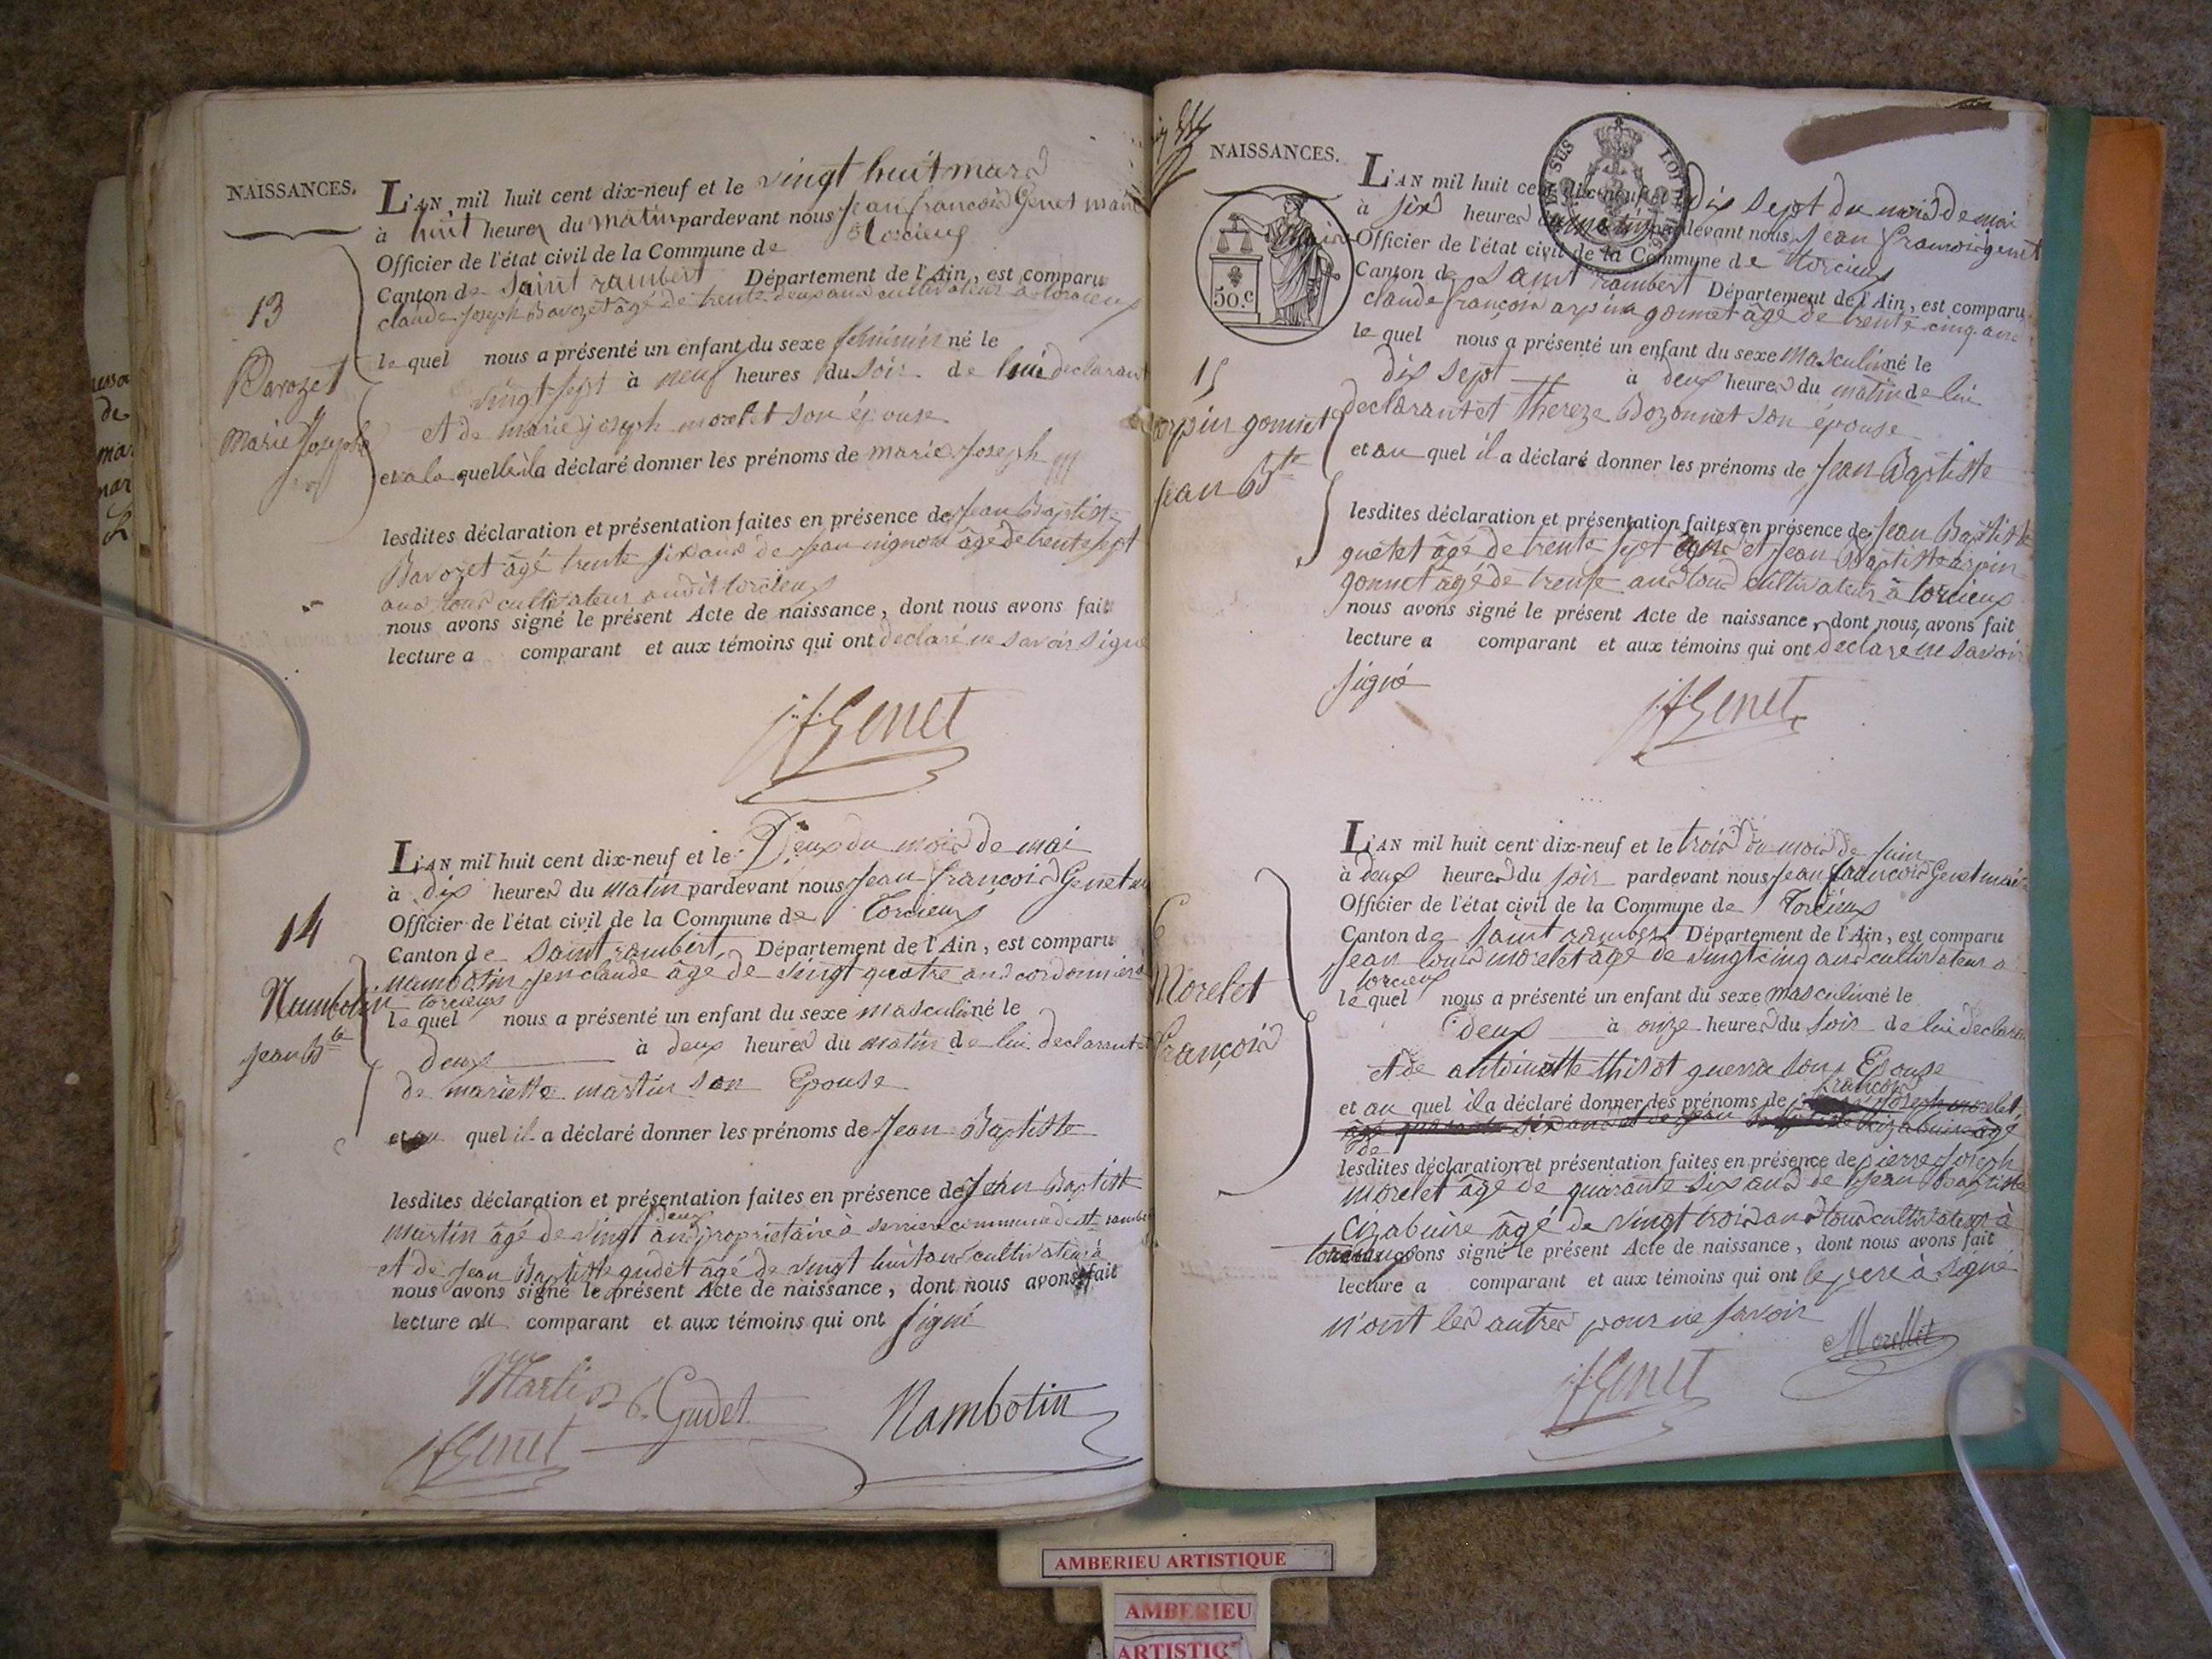 NAISSANCES.
13
Bavozet
Marie Josephe
L'AN mil huit cent dix-neuf et le vingt huit mars
à huit heures du matin pardevant nous Jean françois Genet maire
Officier de l'état civil de la Commune de torcieux
Canton de Saint rambert Département de l'Ain, est comparu
claude Joseph Bavozet âgé de trente deux ans cultivateur a torcieux
le quel nous a présenté un enfant du sexe feminin né le
vingt-sept à neuf heures du soir de lui declarant
et de marie joseph morelet son épouse
et a la quelle il a déclaré donner les prénoms de marie Joseph
lesdites déclaration et présentation faites en présence de Jean Baptiste
Bavozet âgé trente six ans de Jean mignon âgé de trente sept
ans tous cultivateur audit torcieux
nous avons signé le présent Acte de naissance, dont nous avons fait
lecture a comparant et aux témoins qui ont declaré ne savoir signé
jfGenet
14
Nambotin
Jean Bte
L'AN mil huit cent dix-neuf et le Deux du mois de mai
à dix heures du matin pardevant nous Jean françois Genet
Officier de l'état civil de la Commune de Torcieux
Canton de Saint rambert, Département de l'Ain, est comparu
Nambotin Jean claude âgé de vingt quatre ans cordonnier a
torcieux
le quel nous a présenté un enfant du sexe masculin né le
deux à deux heures du matin de lui declarant et
de mariette martin son Epouse
et au quel il a déclaré donner les prénoms de Jean Baptiste
lesdites déclaration et présentation faites en présence de Jean Baptiste
deux
martin âgé de vingt ans proprietaire à serriere commune de st rambert
et de Jean Baptiste gudet âgé de vingt huit ans cultivateur à
nous avons signé le présent Acte de naissance, dont nous avons fait
lecture au comparant et aux témoins qui ont signé
Martin
Gudet
Nambotin
jfGenet
NAISSANCES.
50.c
15
arpin gonnet
Jean Bte
L'AN mil huit cent dix-neuf et le Dix sept du mois de mai
à six heures du matin pardevant nous Jean francois genet
maire Officier de l'état civil de la Commune de torcieux
Canton de Saint rambert Département de l'Ain, est comparu
claude françois arpin gonnet âgé de trente cinq ans
le quel nous a présenté un enfant du sexe masculin né le
dix sept à deux heures du matin de lui
declarant et Thereze Bozonnet son épouse
et au quel il a déclaré donner les prénoms de Jean Baptiste
lesdites déclaration et présentation faites en présence de Jean Baptiste
guetet âgé de trente sept ans et Jean Baptiste arpin
gonnet âgé de trente ans tous cultivateur à torcieux
nous avons signé le présent Acte de naissance, dont nous avons fait
lecture a comparant et aux témoins qui ont declaré ne savoir
signé
jfGenet
6
Morelet
françois
L'AN mil huit cent dix-neuf et le trois du mois de Juin
à deux heures du soir pardevant nous Jean francois Genet maire
Officier de l'état civil de la Commune de Torcieux
Canton de Saint rambert Département de l'Ain, est comparu
Jean louis morelet âgé de vingt cinq ans cultivateur a
torcieux
le quel nous a présenté un enfant du sexe masculin né le
deux à onze heures du soir de lui declarant
et de antoinette thisot guerra son Epouse
françois
et au quel il a déclaré donner les prénoms de Joseph morelet,
âgé quarante six ans et de Jean cizabuire âgé
de
lesdites déclaration et présentation faites en présence de pierre Joseph
morelet âgé de quarante six ans de Jean Baptiste
Cizabuire âgé de vingt trois ans tous cultivateur à
torcieux avons signé le présent Acte de naissance, dont nous avons fait
lecture a comparant et aux témoins qui ont le pere à signé
n'ont les autres pour ne savoir
Morellet
jfGenet
AMBERIEU ARTISTIQUE
AMBERIEU
ARTISTIQ